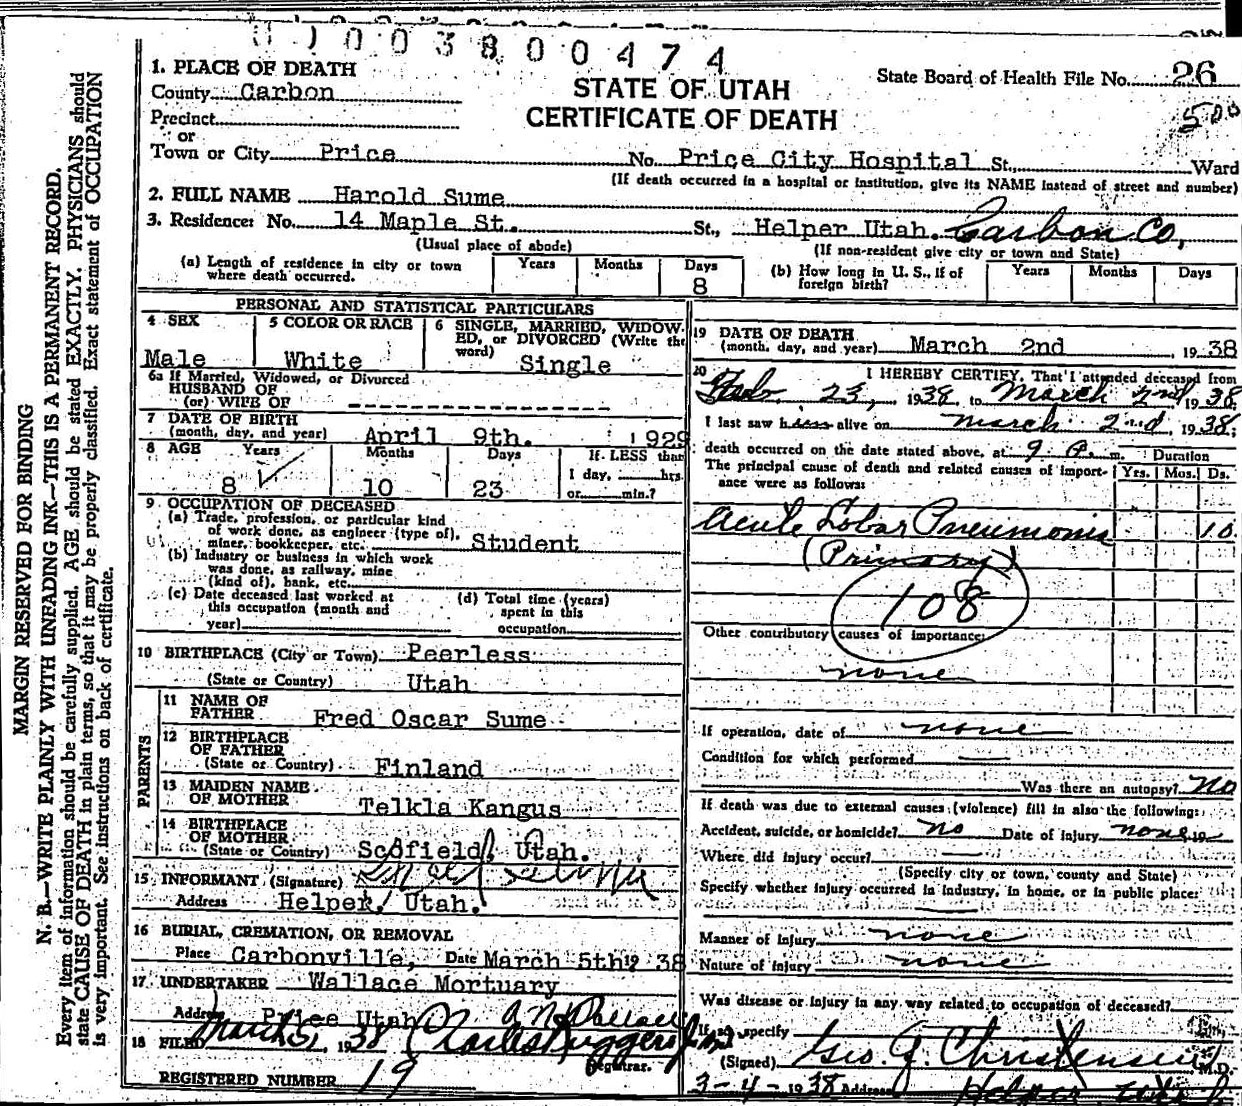 0 0 3 8 0 0 4 7 4
1. PLACE OF DEATH
STATE OF UTAH
CERTIFICATE OF DEATH
State Board of Health File No. 26
County Carbon
Precinct
or
Town or City Price No. Price City Hospital St., Ward
(If death occurred in a hospital or institution, give its NAME instead of street and number)
2. FULL NAME Harold Sume
3. Residence: No. 14 Maple St. St., Helper Utah. Carbon Co,
(Usual place of abode) (If non-resident give city or town and State)
(a) Length of residence in city or town where death occurred. Years Months Days 8
(b) How long in U. S., if of foreign birth? Years Months Days
PERSONAL AND STATISTICAL PARTICULARS
4 SEX Male
5 COLOR OR RACE White
6 SINGLE, MARRIED, WIDOWED, or DIVORCED (Write the word) Single
6a If Married, Widowed, or Divorced
HUSBAND OF
(or) WIFE OF
7 DATE OF BIRTH
(month, day, and year) April 9th. 1929
8 AGE Years 8 Months 10 Days 23 If LESS than
1 day, hrs.
or min.?
9 OCCUPATION OF DECEASED
(a) Trade, profession, or particular kind
of work done, as engineer (type of),
miner, bookkeeper, etc. Student
(b) Industry or business in which work
was done, as railway, mine
(kind of), bank, etc.
(c) Date deceased last worked at
this occupation (month and
year)
(d) Total time (years)
spent in this
occupation
10 BIRTHPLACE (City or Town) Peerless
(State or Country) Utah
PARENTS
11 NAME OF
FATHER Fred Oscar Sume
12 BIRTHPLACE
OF FATHER
(State or Country) Finland
13 MAIDEN NAME
OF MOTHER Telkla Kangus
14 BIRTHPLACE
OF MOTHER
(State or Country) Scofield, Utah.
15 INFORMANT (Signature)
Address Helper, Utah.
16 BURIAL, CREMATION, OR REMOVAL
Place Carbonville, Date March 5th 19 38
17 UNDERTAKER Wallace Mortuary
Address Price Utah
18 FILED March 5, 1938 Charles Ruggeri
Registrar.
REGISTERED NUMBER 19
19 DATE OF DEATH
(month, day, and year) March 2nd, 1938
20 I HEREBY CERTIFY, That I attended deceased from
Feb 23, 1938, to March 2nd, 1938,
I last saw him alive on March 2nd, 1938;
death occurred on the date stated above, at 9 A. m. Duration
The principal cause of death and related causes of importance were as follows: Yrs. Mos. Ds.
Acute Lobar Pneumonia 10
(Primary)
108
Other contributory causes of importance:
none
If operation, date of none
Condition for which performed
Was there an autopsy? No
If death was due to external causes (violence) fill in also the following:
Accident, suicide, or homicide? No Date of injury none, 19
Where did injury occur?
(Specify city or town, county and State)
Specify whether injury occurred in industry, in home, or in public place:
Manner of injury none
Nature of injury none
Was disease or injury in any way related to occupation of deceased?
If so, specify
(Signed) Geo. J. Christensen M.D.
3-4-1938 Address Helper Utah
MARGIN RESERVED FOR BINDING
N. B.—WRITE PLAINLY WITH UNFADING INK—THIS IS A PERMANENT RECORD.
Every item of information should be carefully supplied. AGE should be stated EXACTLY. PHYSICIANS should
state CAUSE OF DEATH in plain terms, so that it may be properly classified. Exact statement of OCCUPATION
is very important. See instructions on back of certificate.